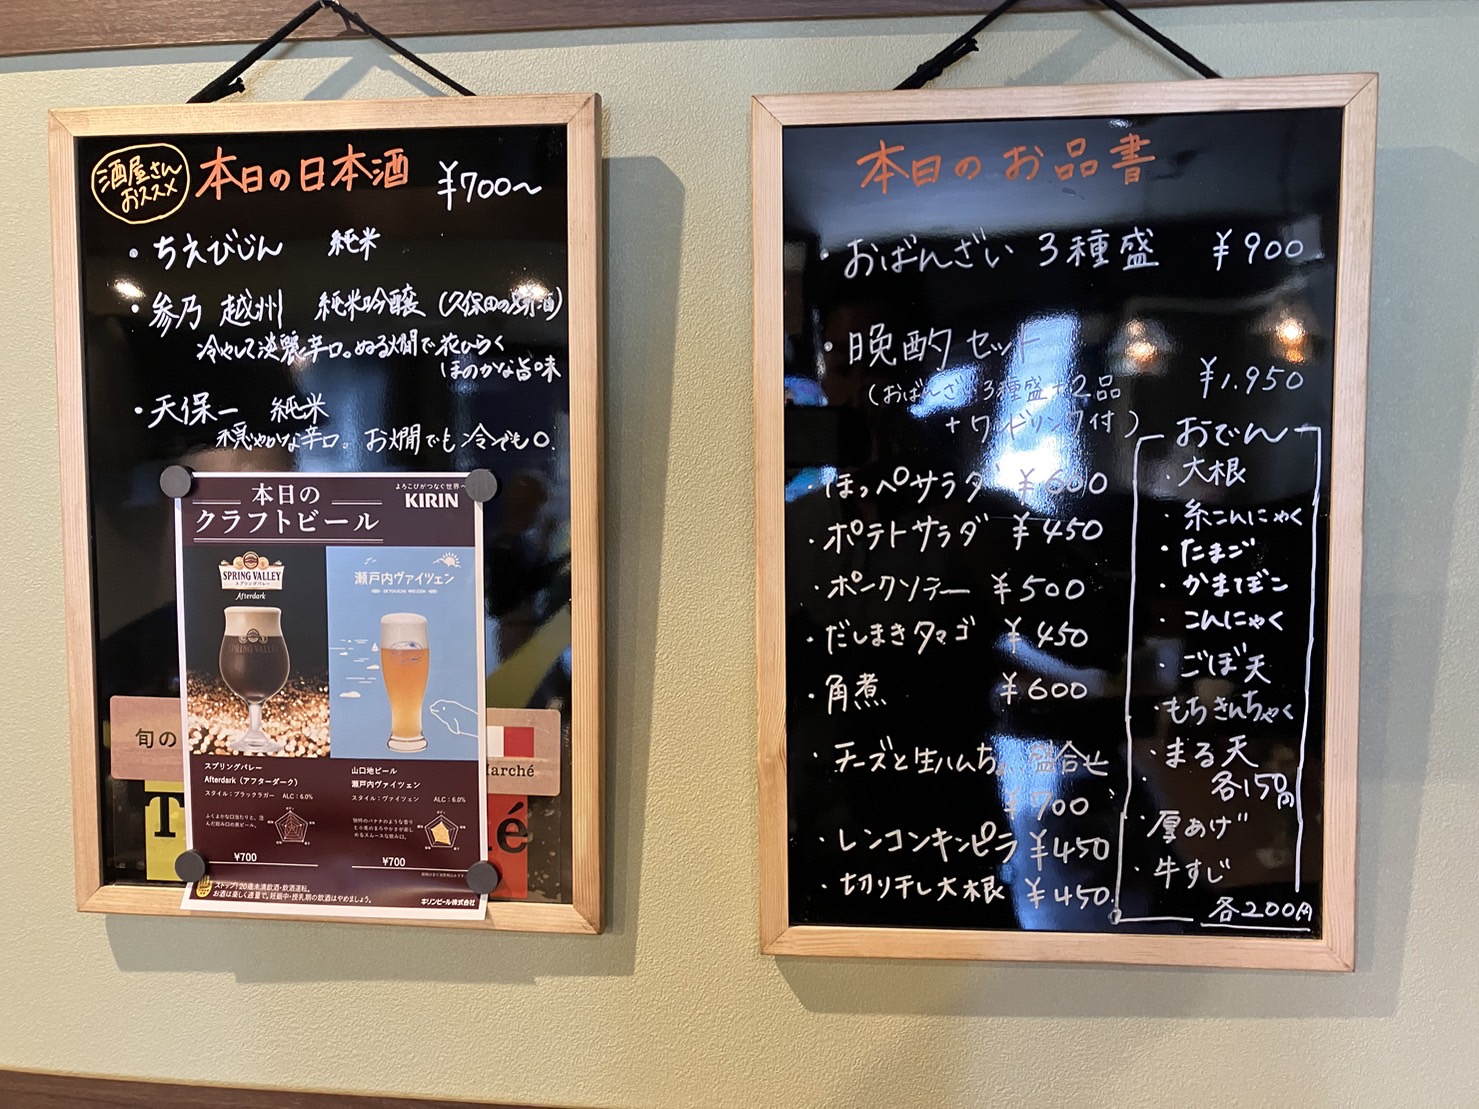 酒屋さん
おススメ
本日の日本酒 ¥700〜
・ちえびじん 純米
・参乃 越州 純米吟醸 (久保田の
冷やして淡麗辛口。ぬる燗で花ひらく
ほのかな旨味
・天保一 純米
穏やかな辛口。お燗でも冷でも○.
よろこびがつなぐ世界へ
KIRIN
本日の
クラフトビール
SPRING VALLEY
スプリングバレー
Afterdark
SPRING VALLEY
瀬戸内ヴァイツェン
SETOUCHI WEIZEN
スプリングバレー
Afterdark（アフターダーク）
スタイル：ブラックラガー ALC：6.0%
ふくよかな口当たりと、澄
んだ飲み口の黒ビール。
¥700
山口地ビール
瀬戸内ヴァイツェン
スタイル：ヴァイツェン ALC：6.0%
独特のバナナのような香り
と小麦のまろやかさが楽し
めるスムースな飲み口。
¥700
ストップ！20歳未満飲酒・飲酒運転。
お酒は楽しく適量で。妊娠中・授乳期の飲酒はやめましょう。
キリンビール株式会社
旬の
arché
T
é
本日のお品書
・おばんざい 3種盛 ¥900
・晩酌セット
(おばんざい3種盛+2品 ¥1.950
+ワンドリンク付)
・ほっぺサラダ ¥600
・ポテトサラダ ¥450
・ポークソテー ¥500
・だしまきタマゴ ¥450
・角煮 ¥600
・チーズと生ハムちょい盛合せ
¥700
・レンコンキンピラ ¥450
・切り干し大根 ¥450.
おでん
・大根
・糸こんにゃく
・たまご
・かまぼこ
・こんにゃく
・ごぼ天
・もちきんちゃく
・まる天
各150円
・厚あげ
・牛すじ
各200円